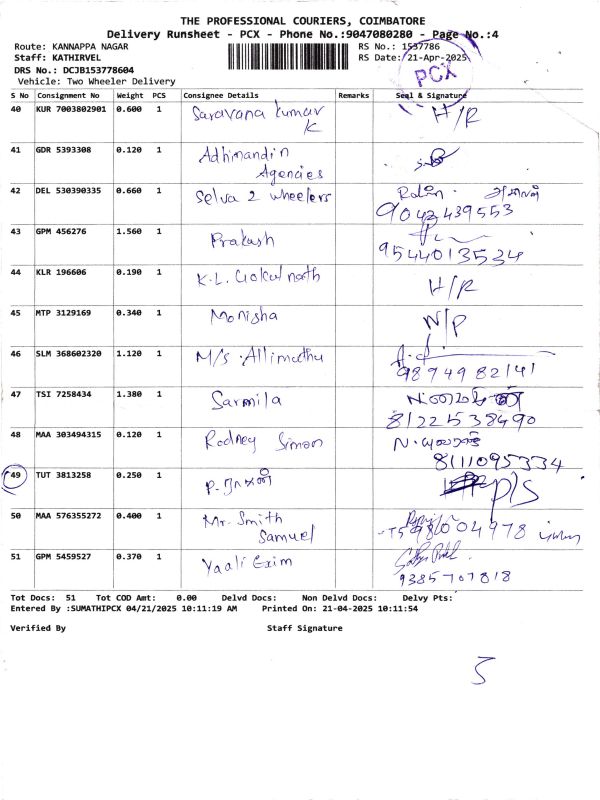 THE PROFESSIONAL COURIERS, COIMBATORE
Delivery Runsheet - PCX - Phone No.:9047080280 - Page No.:4
Route: KANNAPPA NAGAR RS No.: 1537786
Staff: KATHIRVEL RS Date: 21-Apr-2025
DRS No.: DCJB153778604
Vehicle: Two Wheeler Delivery
PCX
S No Consignment No Weight PCS Consignee Details Remarks Seal & Signature
40 KUR 7003802901 0.600 1 Saravana kumar H/R
K
41 GDR 5393308 0.120 1 Adhinandin
Agencies
42 DEL 530390335 0.660 1 Selva 2 wheelers
9042439553
43 GPM 456276 1.560 1 Prakash
9544013534
44 KLR 196606 0.190 1 K.L. Gokulnath H/R
45 MTP 3129169 0.340 1 Monisha N/P
46 SLM 368602320 1.120 1 M/s. Allimuthu
9894982141
47 TSI 7258434 1.380 1 Sarmila
8122538490
48 MAA 303494315 0.120 1 Rodney Simon
8111095334
49 TUT 3813258 0.250 1 P. P/S
50 MAA 576355272 0.400 1 Mr. Smith
Samuel
51 GPM 5459527 0.370 1 Yaali Exim
9385707818
Tot Docs: 51 Tot COD Amt: 0.00 Delvd Docs: Non Delvd Docs: Delvy Pts:
Entered By :SUMATHIPCX 04/21/2025 10:11:19 AM Printed On: 21-04-2025 10:11:54
Verified By Staff Signature